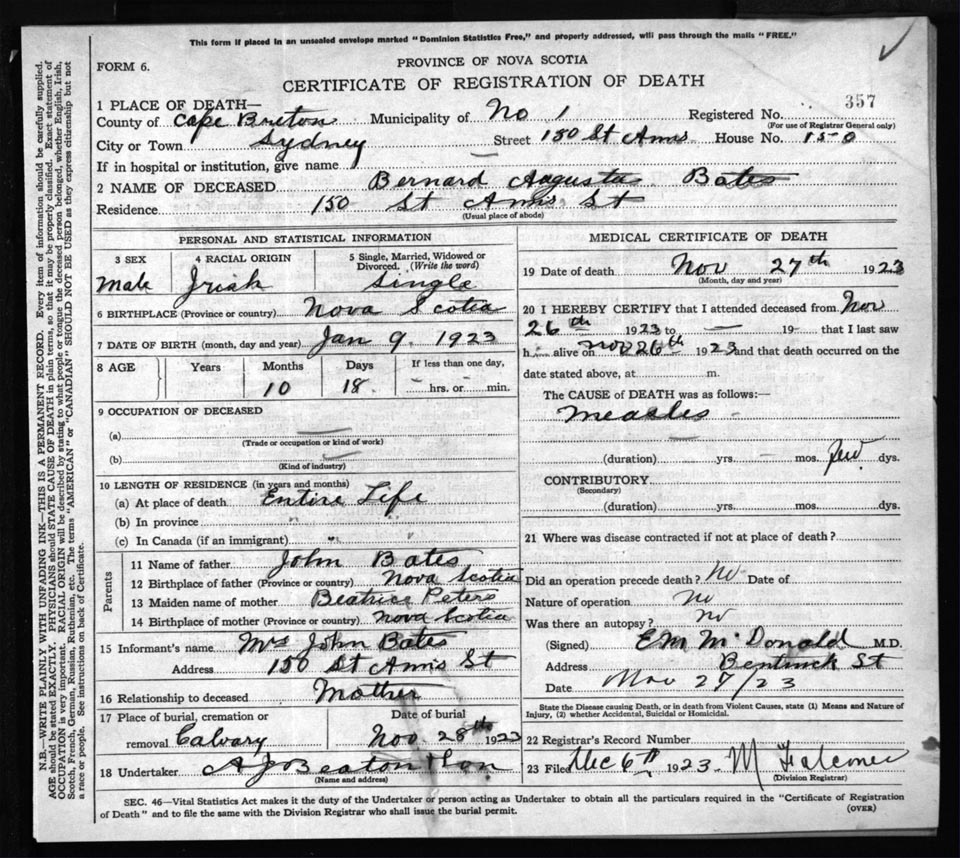 This form if placed in an unsealed envelope marked "Dominion Statistics Free," and properly addressed, will pass through the mails "FREE."
FORM 6.
PROVINCE OF NOVA SCOTIA
CERTIFICATE OF REGISTRATION OF DEATH
357
1 PLACE OF DEATH—
County of Cape Breton Municipality of No 1 Registered No.
(For use of Registrar General only)
City or Town Sydney Street 150 St Anns House No. 150
If in hospital or institution, give name —
2 NAME OF DECEASED Bernard Augusta Bates
Residence 150 St Anns St
(Usual place of abode)
PERSONAL AND STATISTICAL INFORMATION
3 SEX 4 RACIAL ORIGIN 5 Single, Married, Widowed or Divorced. (Write the word)
Male Irish Single
6 BIRTHPLACE (Province or country) Nova Scotia
7 DATE OF BIRTH (month, day and year) Jan 9 1923
8 AGE Years Months Days If less than one day,
10 18 — hrs. or — min.
9 OCCUPATION OF DECEASED
(a) —
(Trade or occupation or kind of work)
(b)
(Kind of industry)
10 LENGTH OF RESIDENCE (in years and months)
(a) At place of death Entire Life
(b) In province " "
(c) In Canada (if an immigrant) " "
Parents
11 Name of father John Bates
12 Birthplace of father (Province or country) Nova Scotia
13 Maiden name of mother Beatrice Peters
14 Birthplace of mother (Province or country) Nova Scotia
15 Informant's name Mrs John Bates
Address 150 St Anns St
16 Relationship to deceased Mother
17 Place of burial, cremation or removal Calvary Date of burial Nov 28th 1923
18 Undertaker A J Beaton & Son
(Name and address)
MEDICAL CERTIFICATE OF DEATH
19 Date of death Nov 27th 1923
(Month, day and year)
20 I HEREBY CERTIFY that I attended deceased from Nov
26th 1923 to — 19— that I last saw
h alive on Nov 26th 1923 and that death occurred on the
date stated above, at — m.
The CAUSE OF DEATH was as follows:—
Measles
—
(duration) yrs. — mos. few dys.
CONTRIBUTORY
(Secondary)
(duration) yrs. mos. dys.
21 Where was disease contracted if not at place of death?
Did an operation precede death? No Date of
Nature of operation no
Was there an autopsy? no
(Signed) E M McDonald M.D.
Address Bentinck St
Date Nov 27/23
State the Disease causing Death, or in death from Violent Causes, state (1) Means and Nature of
Injury, (2) whether Accidental, Suicidal or Homicidal.
22 Registrar's Record Number
23 Filed Dec 6th 1923 M Falconer
(Division Registrar)
SEC. 46—Vital Statistics Act makes it the duty of the Undertaker or person acting as Undertaker to obtain all the particulars required in the "Certificate of Registration
of Death" and to file the same with the Division Registrar who shall issue the burial permit.
(OVER)
N.B.—WRITE PLAINLY WITH UNFADING INK—THIS IS A PERMANENT RECORD. Every item of information should be carefully supplied.
AGE should be stated EXACTLY. PHYSICIANS should STATE CAUSE OF DEATH in plain terms, so that it may be properly classified. Exact statement of
OCCUPATION is very important. RACIAL ORIGIN will be described by stating to what people or tongue the deceased person belonged, whether English, Irish,
Scotch, French, German, Russian, Ruthenian, etc. The terms "AMERICAN" or "CANADIAN" SHOULD NOT BE USED as they express citizenship but not
a race or people. See instructions on back of Certificate.